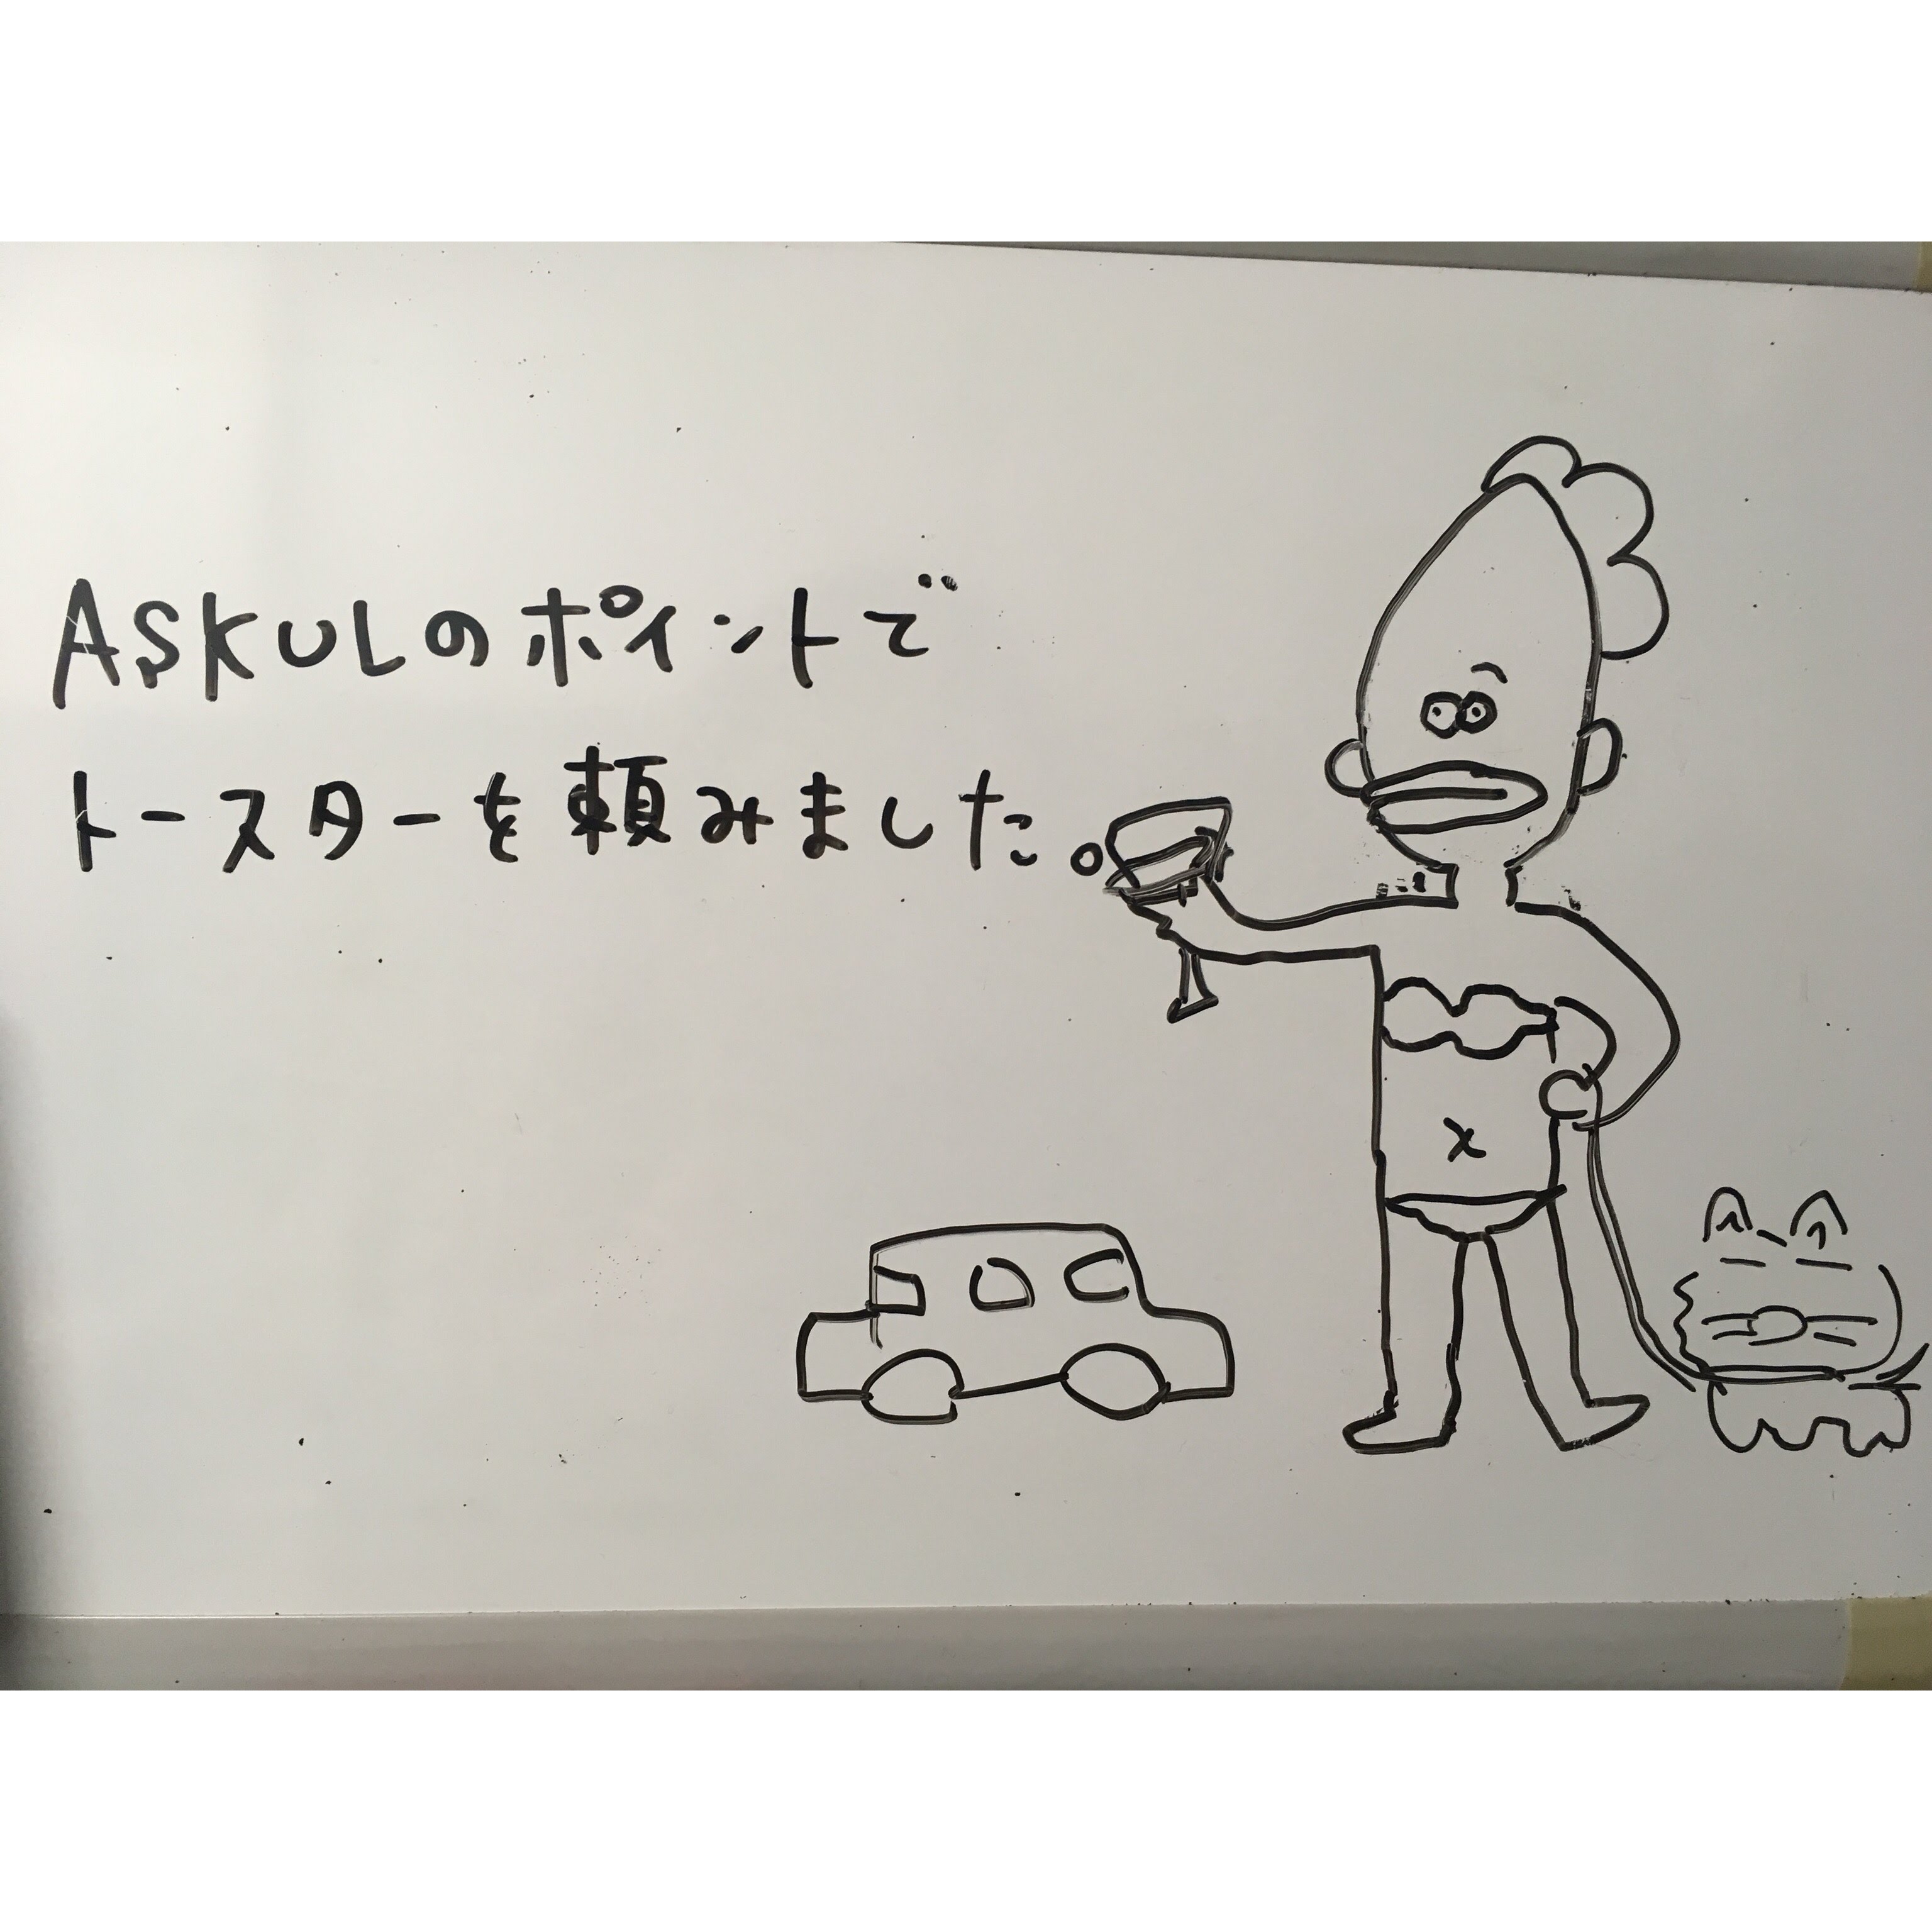 ASKULのポイントで
トースターを頼みました。